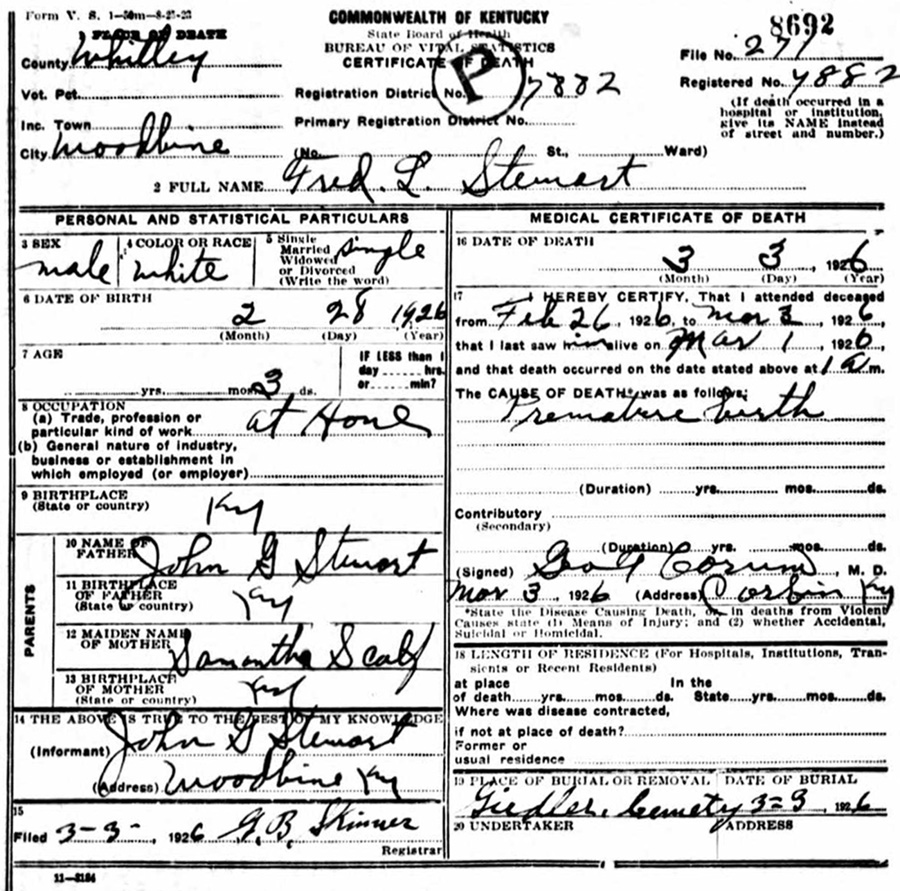 Form V. S. 1-50m-8-21-22
COMMONWEALTH OF KENTUCKY
State Board of Health
BUREAU OF VITAL STATISTICS
CERTIFICATE OF DEATH
8692
1 PLACE OF DEATH
County Whitley
File No. 271
Vot. Pct.
Registration District No. 7882
Registered No. 7882
P
(If death occurred in a hospital or institution, give its NAME instead of street and number.)
Inc. Town
Primary Registration District No.
City Woodbine (No. St., Ward)
2 FULL NAME Fred. L. Stewart
PERSONAL AND STATISTICAL PARTICULARS
3 SEX male
4 COLOR OR RACE white
5 Single Married Widowed or Divorced (Write the word) single
6 DATE OF BIRTH
2 28 1926
(Month) (Day) (Year)
7 AGE
yrs. mos. 3 ds.
IF LESS than 1 day hrs. or min?
8 OCCUPATION
(a) Trade, profession or particular kind of work at Home
(b) General nature of industry, business or establishment in which employed (or employer)
9 BIRTHPLACE (State or country) Ky
PARENTS
10 NAME OF FATHER John G Stewart
11 BIRTHPLACE OF FATHER (State or country) Ky
12 MAIDEN NAME OF MOTHER Samantha Scalf
13 BIRTHPLACE OF MOTHER (State or country) Ky
14 THE ABOVE IS TRUE TO THE BEST OF MY KNOWLEDGE
(Informant) John G Stewart
(Address) Woodbine Ky
15
Filed 3-3-, 1926 G. B. Skinner
Registrar
11-3184
MEDICAL CERTIFICATE OF DEATH
16 DATE OF DEATH
3 3, 1926
(Month) (Day) (Year)
17 I HEREBY CERTIFY, That I attended deceased
from Feb 26, 1926, to Mar 3, 1926,
that I last saw him alive on Mar 1, 1926,
and that death occurred on the date stated above at 1 a m.
The CAUSE OF DEATH* was as follows:
Premature birth
(Duration) yrs. mos. ds.
Contributory
(Secondary)
(Duration) yrs. mos. ds.
(Signed) Corum, M. D.
Mar 3, 1926 (Address) Corbin Ky
*State the Disease Causing Death, or, in deaths from Violent
Causes state (1) Means of Injury; and (2) whether Accidental,
Suicidal or Homicidal.
18 LENGTH OF RESIDENCE (For Hospitals, Institutions, Transients or Recent Residents)
at place of death yrs. mos. ds. In the State yrs. mos. ds.
Where was disease contracted,
if not at place of death?
Former or
usual residence
19 PLACE OF BURIAL OR REMOVAL DATE OF BURIAL
Cemety 3-3, 1926
20 UNDERTAKER ADDRESS